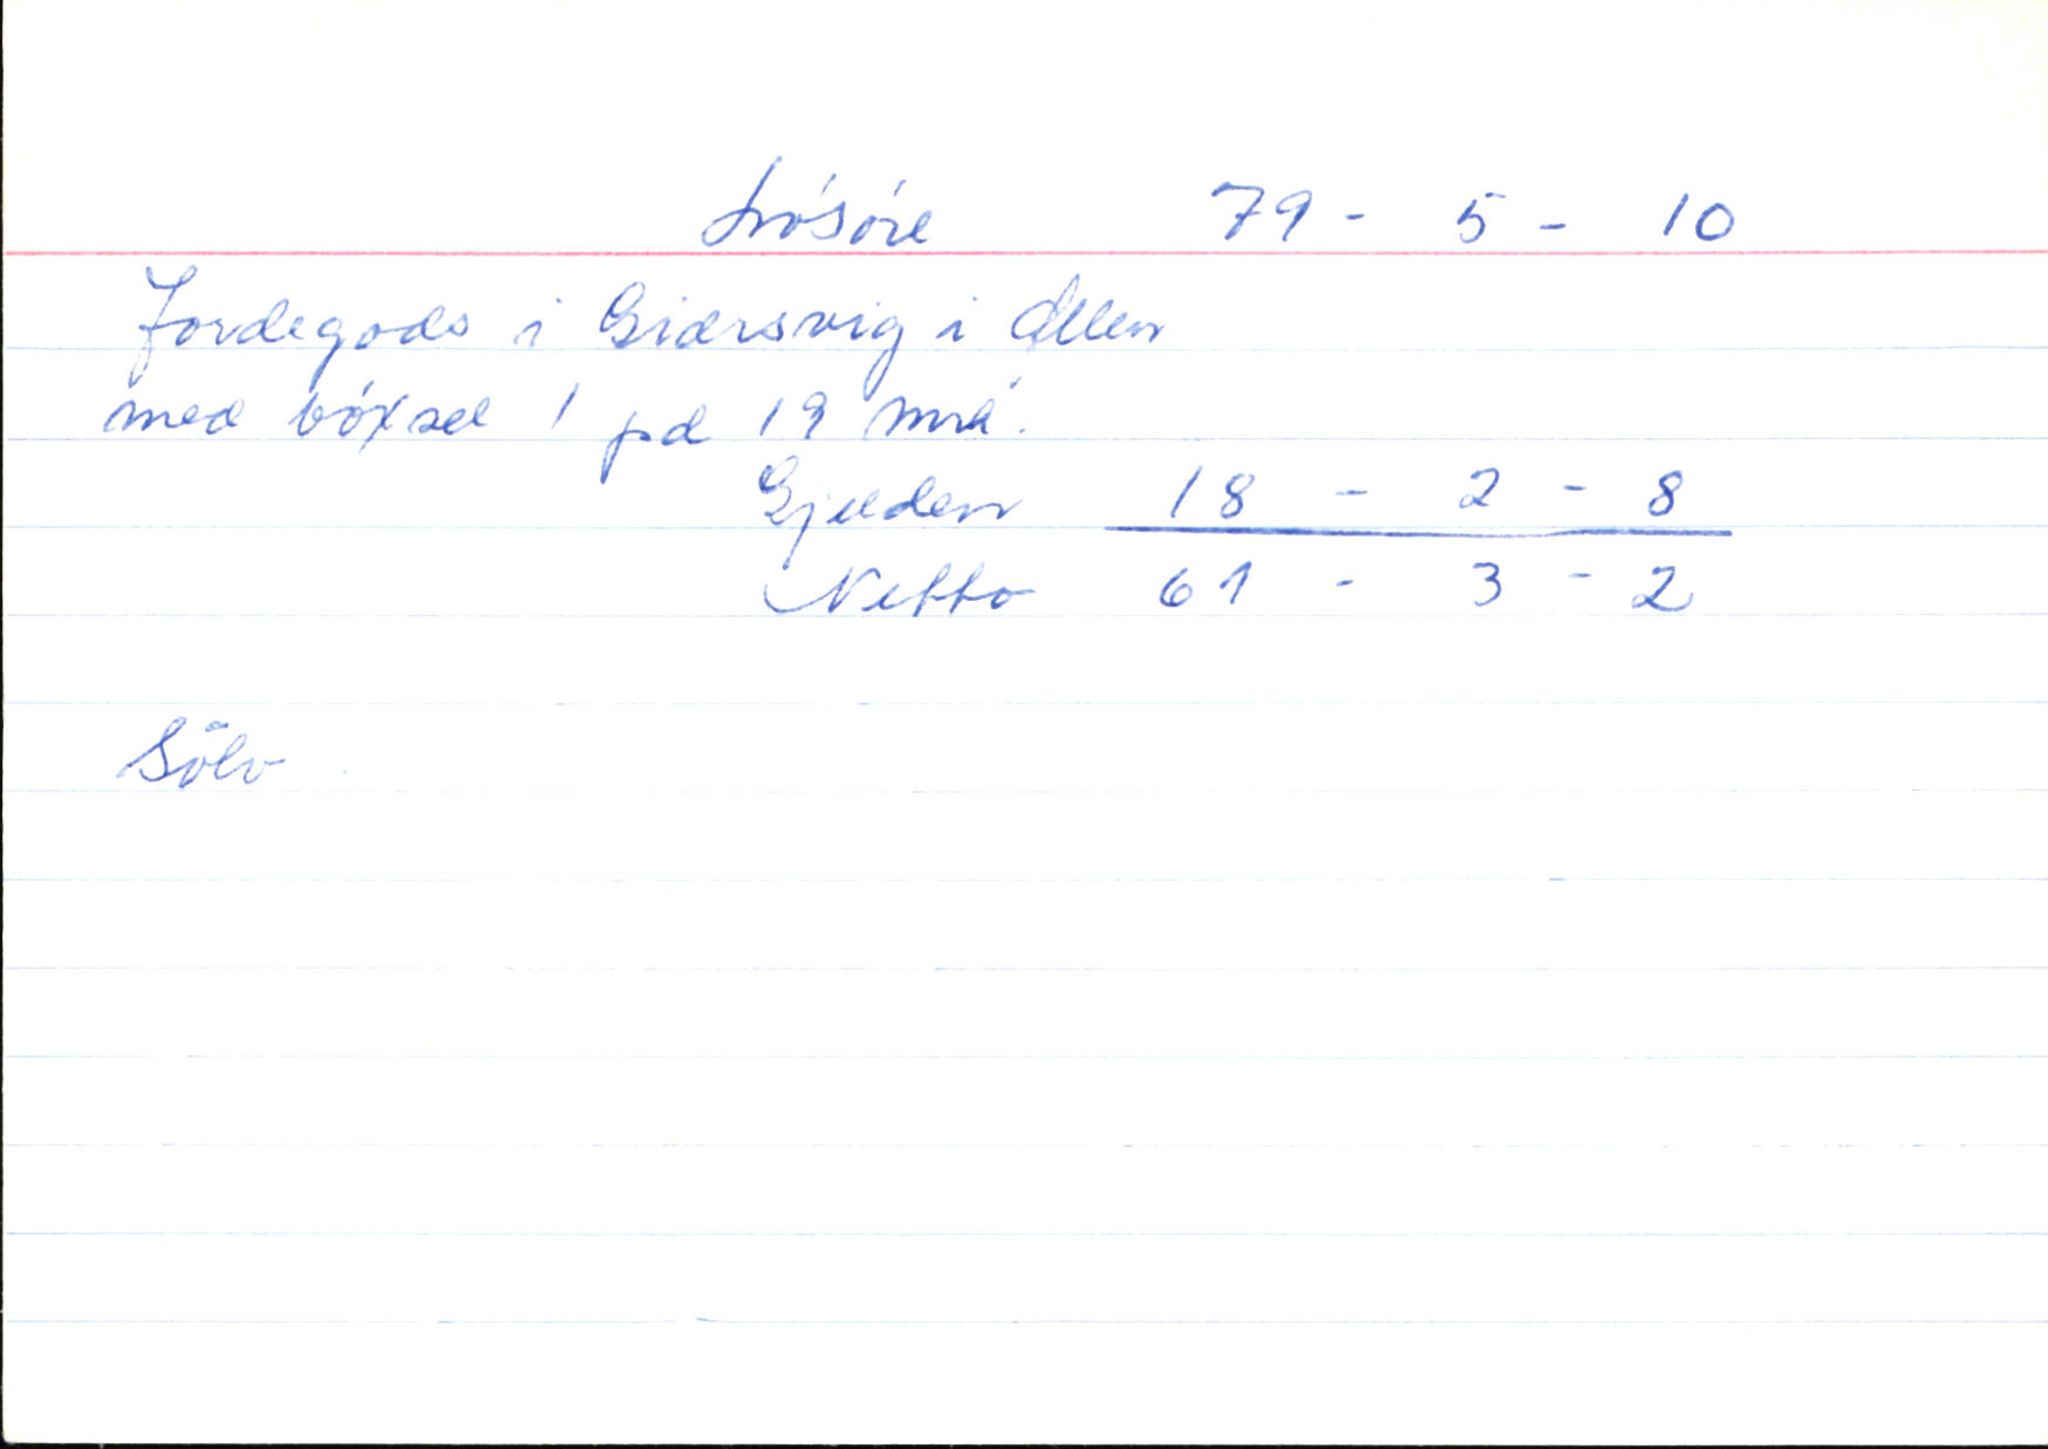 Lösöre 79 - 5 - 10
Jordegods i Giærsvig i Ølen
med böxsel 1 pd 19 mrk.
Gjelden 18 - 2 - 8
Netto 61 - 3 - 2
Sölv